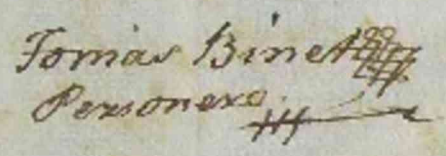 Tomas Binet
Personero.